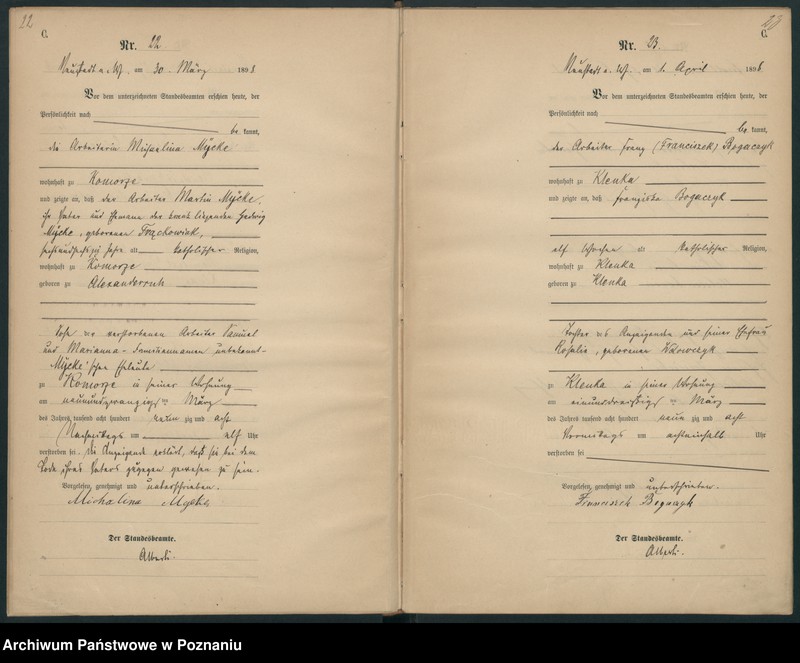 22
C.
Nr. 22.
Neustadt a. W. am 30. März 1898
Vor dem unterzeichneten Standesbeamten erschien heute, der
Persönlichkeit nach
be kannt,
die Arbeiterin Michalina Mÿcke
wohnhaft zu Komorze
und zeigte an, daß der Arbeiter Martin Mÿcke,
ihr Vater und Ehemann der Hedwig
Mÿcke, geborenen Frąckowiak,
Jahre alt katholischer Religion,
wohnhaft zu Komorze
geboren zu Alexanderruh
Sohn der verstorbenen Arbeiter Samuel
und Marianna - Familiennamen unbekannt -
Mÿcke'schen Eheleute
zu Komorze in seiner Wohnung
am neunundzwanzigsten März
des Jahres tausend acht hundert neun zig und acht
Nachmittags um elf Uhr
verstorben sei. Die Anzeigende erklärt, daß sie bei dem
Tode ihres Vaters zugegen gewesen zu sein.
Vorgelesen, genehmigt und unterschrieben.
Michalina Mycke
Der Standesbeamte.
Alberti.
23
C.
Nr. 23.
Neustadt a. W. am 1. April 1898
Vor dem unterzeichneten Standesbeamten erschien heute, der
Persönlichkeit nach
be kannt,
der Arbeiter Franz (Franciszek) Bogaczyk
wohnhaft zu Klenka
und zeigte an, daß Franziska Bogaczyk
elf Wochen alt katholischer Religion,
wohnhaft zu Klenka
geboren zu Klenka
Tochter des Anzeigenden und seiner Ehefrau
Rosalie, geborenen Wdowczyk
zu Klenka in seiner Wohnung
am einunddreißigsten März
des Jahres tausend acht hundert neun zig und acht
Vormittags um achteinhalb Uhr
verstorben sei
Vorgelesen, genehmigt und unterschrieben.
Franciszek Bogaczyk
Der Standesbeamte.
Alberti.
Archiwum Państwowe w Poznaniu